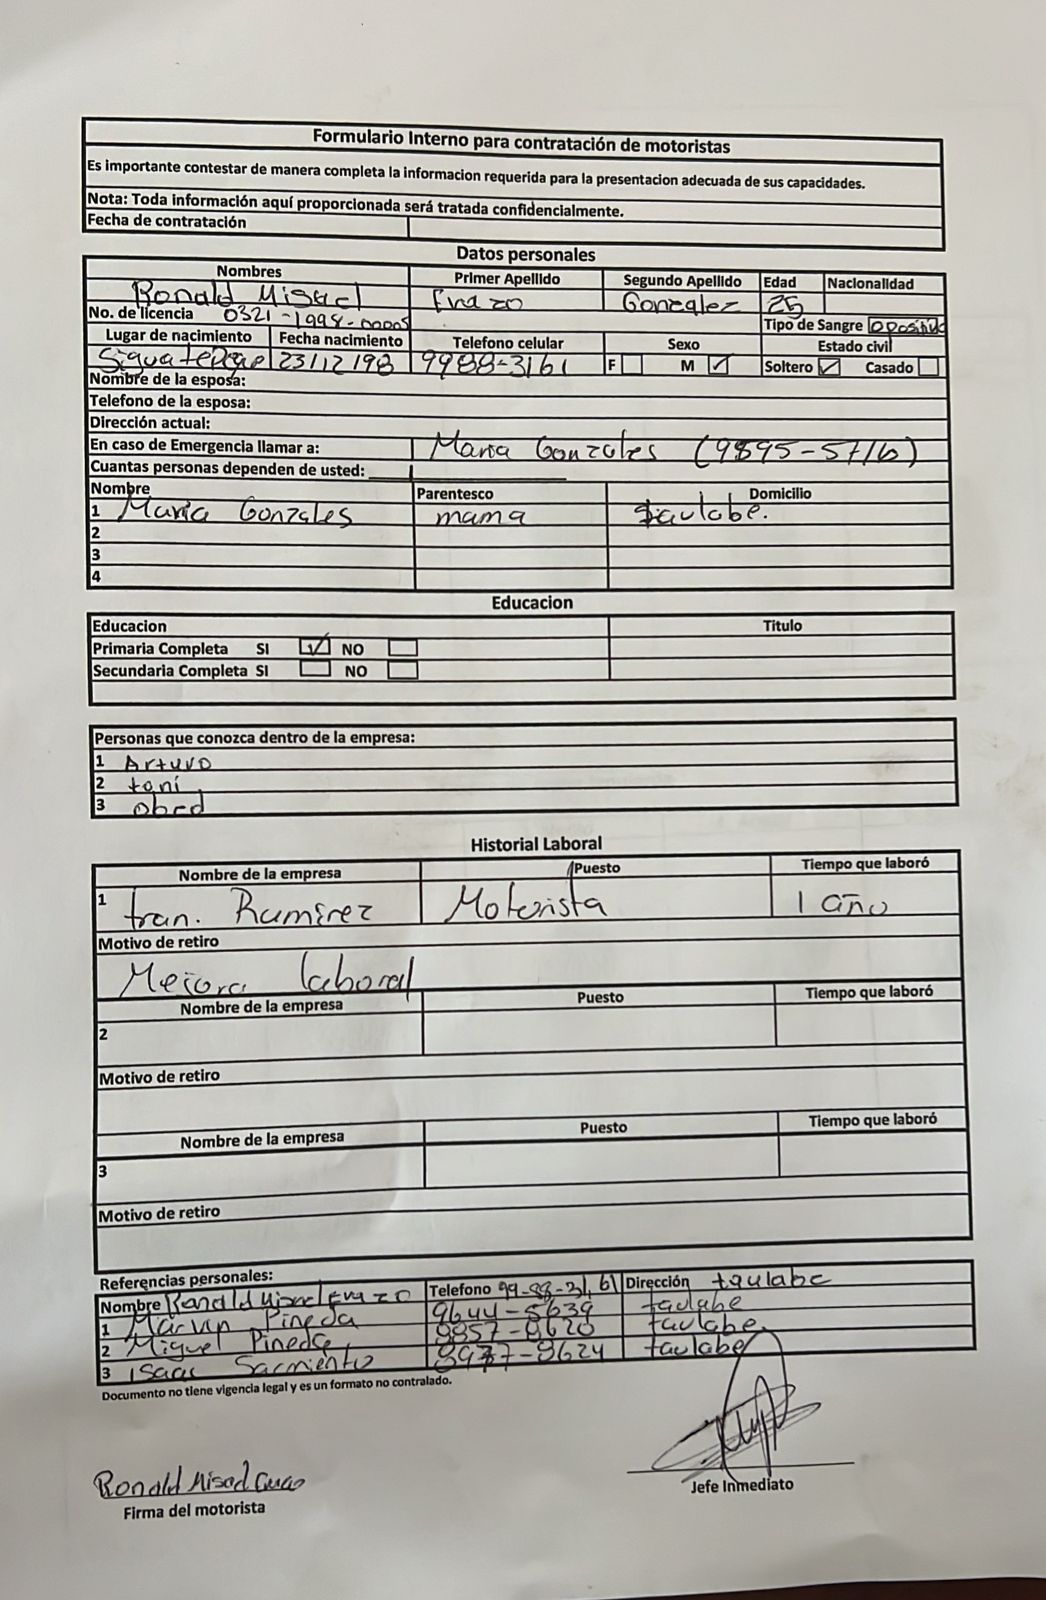 Formulario Interno para contratación de motoristas
Es importante contestar de manera completa la informacion requerida para la presentacion adecuada de sus capacidades.
Nota: Toda información aquí proporcionada será tratada confidencialmente.
Fecha de contratación
Datos personales
Nombres Primer Apellido Segundo Apellido Edad Nacionalidad
Ronald Misael Erazo Gonzalez 25
No. de licencia 0321-1998-00005 Tipo de Sangre O positivo
Lugar de nacimiento Fecha nacimiento Telefono celular Sexo Estado civil
23/12/98 9988-3161 F M ✓ Soltero ✓ Casado
Nombre de la esposa:
Telefono de la esposa:
Dirección actual:
En caso de Emergencia llamar a: Maria Gonzales (9895-5716)
Cuantas personas dependen de usted: 1
Nombre Parentesco Domicilio
1 Maria Gonzales mama taulabe.
2
3
4
Educacion
Educacion Titulo
Primaria Completa SI ✓ NO
Secundaria Completa SI NO
Personas que conozca dentro de la empresa:
1 Arturo
2 toni
3 obed
Historial Laboral
Nombre de la empresa Puesto Tiempo que laboró
1 tran. Ramirez Motorista 1 año
Motivo de retiro
Mejora laboral
Nombre de la empresa Puesto Tiempo que laboró
2
Motivo de retiro
Nombre de la empresa Puesto Tiempo que laboró
3
Motivo de retiro
Referencias personales:
Nombre Ronald Misael Erazo Telefono 99-88-31,61 Dirección taulabe
1 Marvin Pineda 9644-5639 taulabe
2 Miguel Pineda 8857-8620 taulabe.
3 isaac Sacmiento taulabe
Documento no tiene vigencia legal y es un formato no contralado.
Ronald Misael Erazo
Firma del motorista
Jefe Inmediato